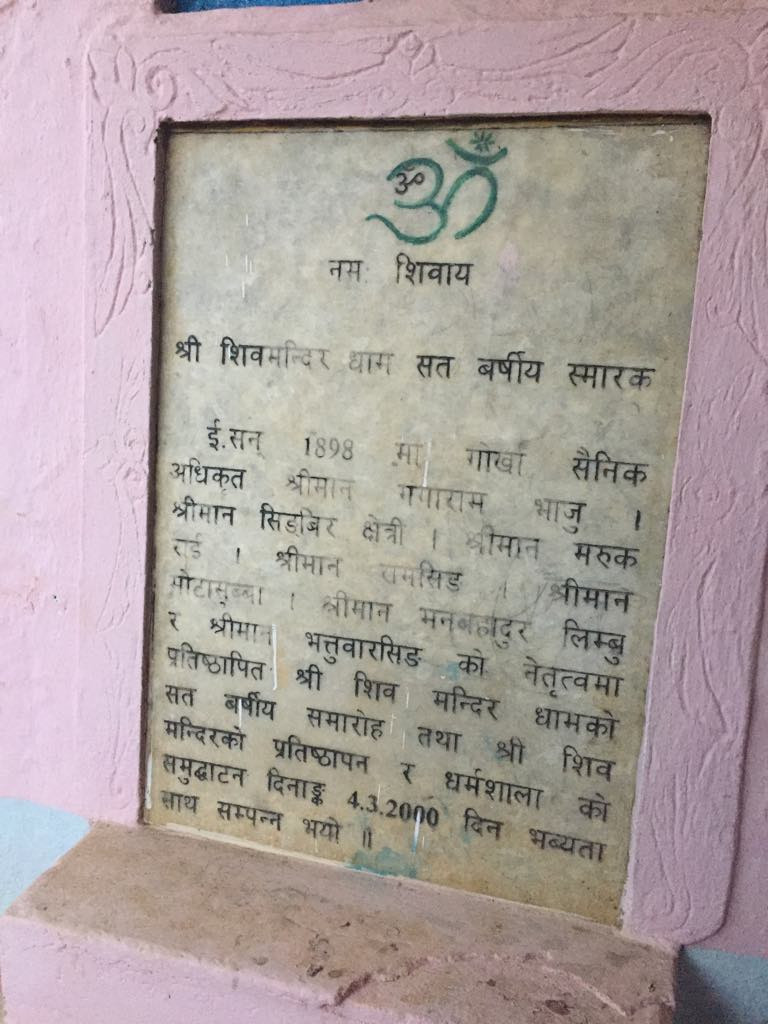 ॐ
ॐ
नमः शिवाय
श्री शिवमन्दिर धाम सत बर्षीय स्मारक
ई.सन् 1898 मा गोर्खा सैनिक
अधिकृत श्रीमान गगाराम भाजु ।
श्रीमान सिङबिर क्षेत्री । श्रीमान मरुक
राई । श्रीमान रामसिङ । श्रीमान
मोटासुब्बा । श्रीमान मनबहादुर लिम्बु
र श्रीमान भत्तुवारसिङ को नेतृत्वमा
प्रतिष्ठापित श्री शिव मन्दिर धामको
सत बर्षीय समारोह तथा श्री शिव
मन्दिरको प्रतिष्ठापन र धर्मशाला को
समुद्घाटन दिनाङ्क 4.3.2000 दिन भब्यता
साथ सम्पन्न भयो ॥